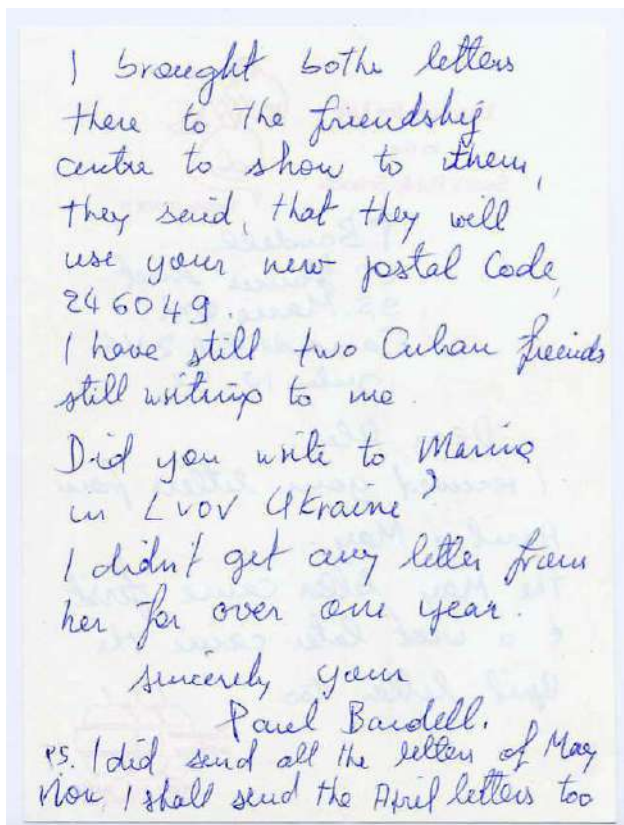 I brought bothe letters
there to the friendship
centre to show to them,
they said, that they will
use your new postal Code,
246049.
I have still two Cuban friends
still writing to me.
Did you write to Marina
in Lvov Ukraine?
I didn't get any letter from
her for over one year.
sincerely your
Paul Bardell.
PS. I did send all the letters of May
Now, I shall send the April letters too